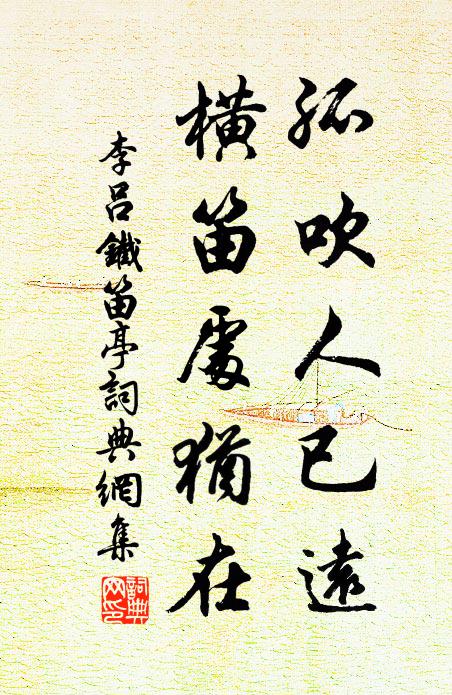 孤吹人已遠
橫笛處猶在
李呂鐵笛亭詞典網集
詞典網印